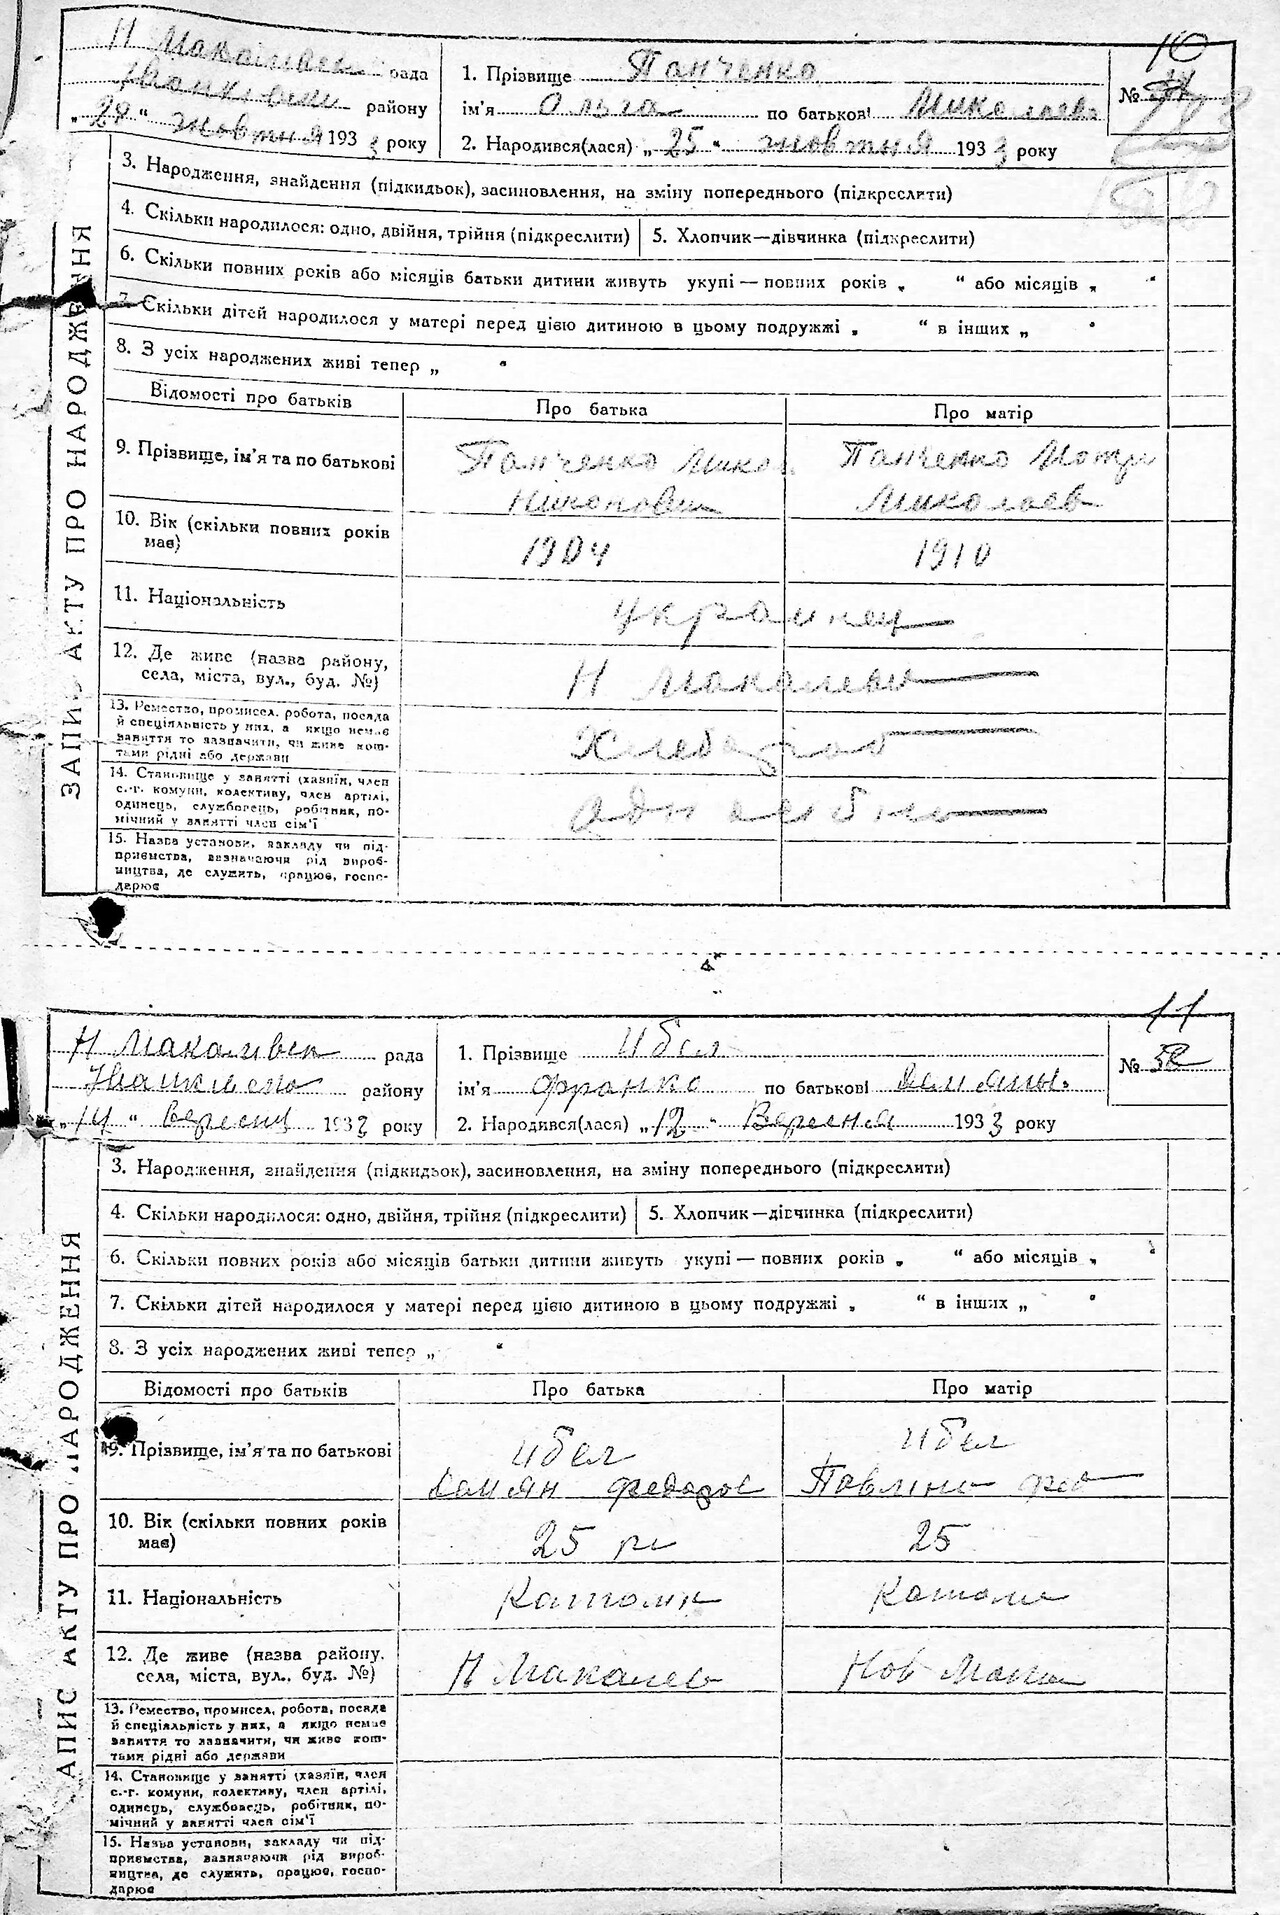 10
Н Макалівск рада
району
"28" жовтня 1933 року
1. Прізвище Панченко
ім'я Ольга по батькові Миколаев
2. Народився(лася) „25" жовтня 1933 року
№
ЗАПИС АКТУ ПРО НАРОДЖЕННЯ
3. Народження, знайдення (підкидьок), засиновлення, на зміну попереднього (підкреслити)
4. Скільки народилося: одно, двійня, трійня (підкреслити) 5. Хлопчик—дівчинка (підкреслити)
6. Скільки повних років або місяців батьки дитини живуть укупі — повних років „ " або місяців „ "
7. Скільки дітей народилося у матері перед цією дитиною в цьому подружжі „ " в інших „ "
8. З усіх народжених живі тепер „ "
Відомості про батьків Про батька Про матір
9. Прізвище, ім'я та по батькові
Панченко Микол Панченко Мотр
Миколаев
10. Вік (скільки повних років має)
1904 1910
11. Національність
украинец
12. Де живе (назва району, села, міста, вул., буд. №)
Н Макалев
13. Ремество, промисел, робота, посада
й спеціяльність у них, а якщо немає
заняття то зазначити, чи живе кош-
тами рідні або держави
Хлебороб
14. Становище у занятті (хазяїн, член
с.-г. комуни, колективу, член артілі,
одинець, службовець, робітник, по-
мічний у занятті член сім'ї
15. Назва установи, закладу чи під-
приємства, зазначаючи рід вироб-
ництва, де служить, працює, госпо-
дарює
11
Н Макалівск рада
району
„14" Вересня 1933 року
1. Прізвище Ибел
ім'я Франко по батькові
2. Народився(лася) „12" Вересня 1933 року
№ 52
АПИС АКТУ ПРО НАРОДЖЕННЯ
3. Народження, знайдення (підкидьок), засиновлення, на зміну попереднього (підкреслити)
4. Скільки народилося: одно, двійня, трійня (підкреслити) 5. Хлопчик—дівчинка (підкреслити)
6. Скільки повних років або місяців батьки дитини живуть укупі — повних років „ " або місяців „ "
7. Скільки дітей народилося у матері перед цією дитиною в цьому подружжі „ " в інших „ "
8. З усіх народжених живі тепер „ "
Відомості про батьків Про батька Про матір
9. Прізвище, ім'я та по батькові
Ибел Ибел
Федоров Павлина Фед
10. Вік (скільки повних років має)
25 25
11. Національність
Католик Католи
12. Де живе (назва району, села, міста, вул., буд. №)
Н Макалев Нов Мака
13. Ремество, промисел, робота, посада
й спеціяльність у них, а якщо немає
заняття то зазначити, чи живе кош-
тами рідні або держави
14. Становище у занятті (хазяїн, член
с.-г. комуни, колективу, член артілі,
одинець, службовець, робітник, по-
мічний у занятті член сім'ї
15. Назва установи, закладу чи під-
приємства, зазначаючи рід вироб-
ництва, де служить, працює, госпо-
дарює